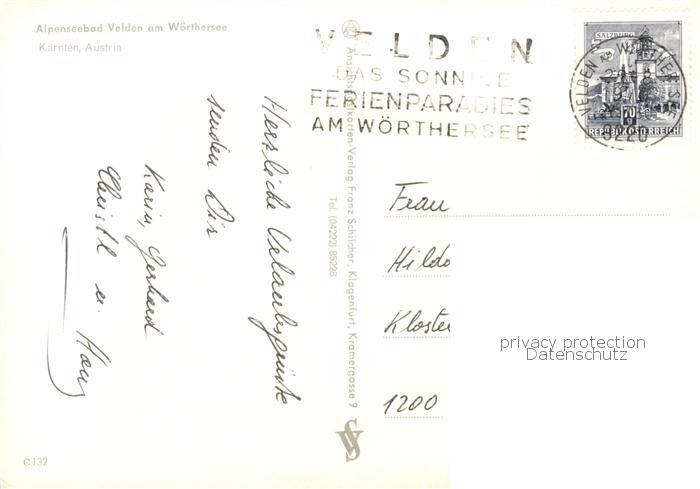 Alpenseebad Velden am Wörthersee
Kärnten, Austria
VELDEN
DAS SONNIGE
FERIENPARADIES
AM WÖRTHERSEE
SALZBURG
70
REPUBLIK ÖSTERREICH
VELDEN AM WÖRTHER SEE
9220
Herzliche Urlaubsgrüße
senden Dir
Karin, Gerhard
Christl u. Hans
Ansichtskarten-Verlag Franz Schilcher, Klagenfurt, Kramergasse 9
Tel. (04222) 85228
Frau
Hilda
Kloster
1200
privacy protection
Datenschutz
C 132